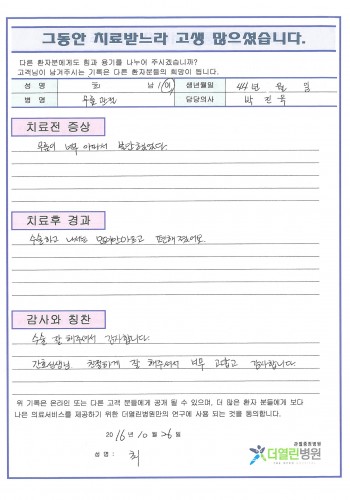 그동안 치료받느라 고생 많으셨습니다.
다른 환자분에게도 힘과 용기를 나누어 주시겠습니까?
고객님이 남겨주시는 기록은 다른 환자분들의 희망이 됩니다.
성 명 최 남 / 여 생년월일 44년 월 일
병 명 무릎관절 담당의사 박진욱
치료전 증상
무릎이 너무 아파서
치료후 경과
수술하고 나서는 편해졌어요
감사와 칭찬
수술 잘 해주셔서 감사합니다.
간호선생님 친절하게 잘 해주셔서 너무 고맙고 감사합니다
위 기록은 온라인 또는 다른 고객 분들에게 공개 될 수 있으며, 더 많은 환자 분들에게 보다
나은 의료서비스를 제공하기 위한 더열린병원만의 연구에 사용 되는 것을 동의합니다.
2016년 10월 26일
성 명 : 최
관절중점병원
더열린병원